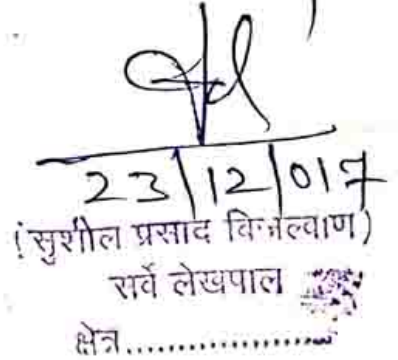 23/12/017
(सुशील प्रसाद विजल्वाण)
सर्वे लेखपाल
क्षेत्र....................